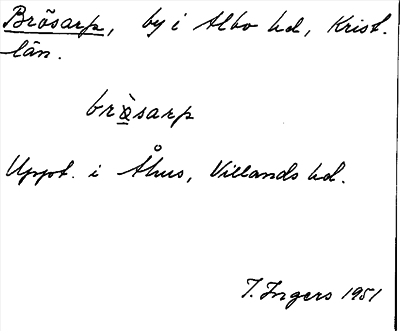 Brösarp, by i Albo hd, Krist.
län.
brò̤sarp
Uppt. i Åhus, Villands hd.
I. Ingers 1951